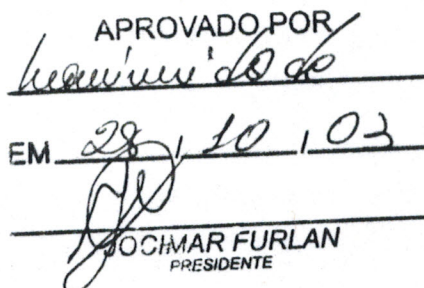 APROVADO POR
unanimidade
EM 28 / 10 / 03
JOCIMAR FURLAN
PRESIDENTE